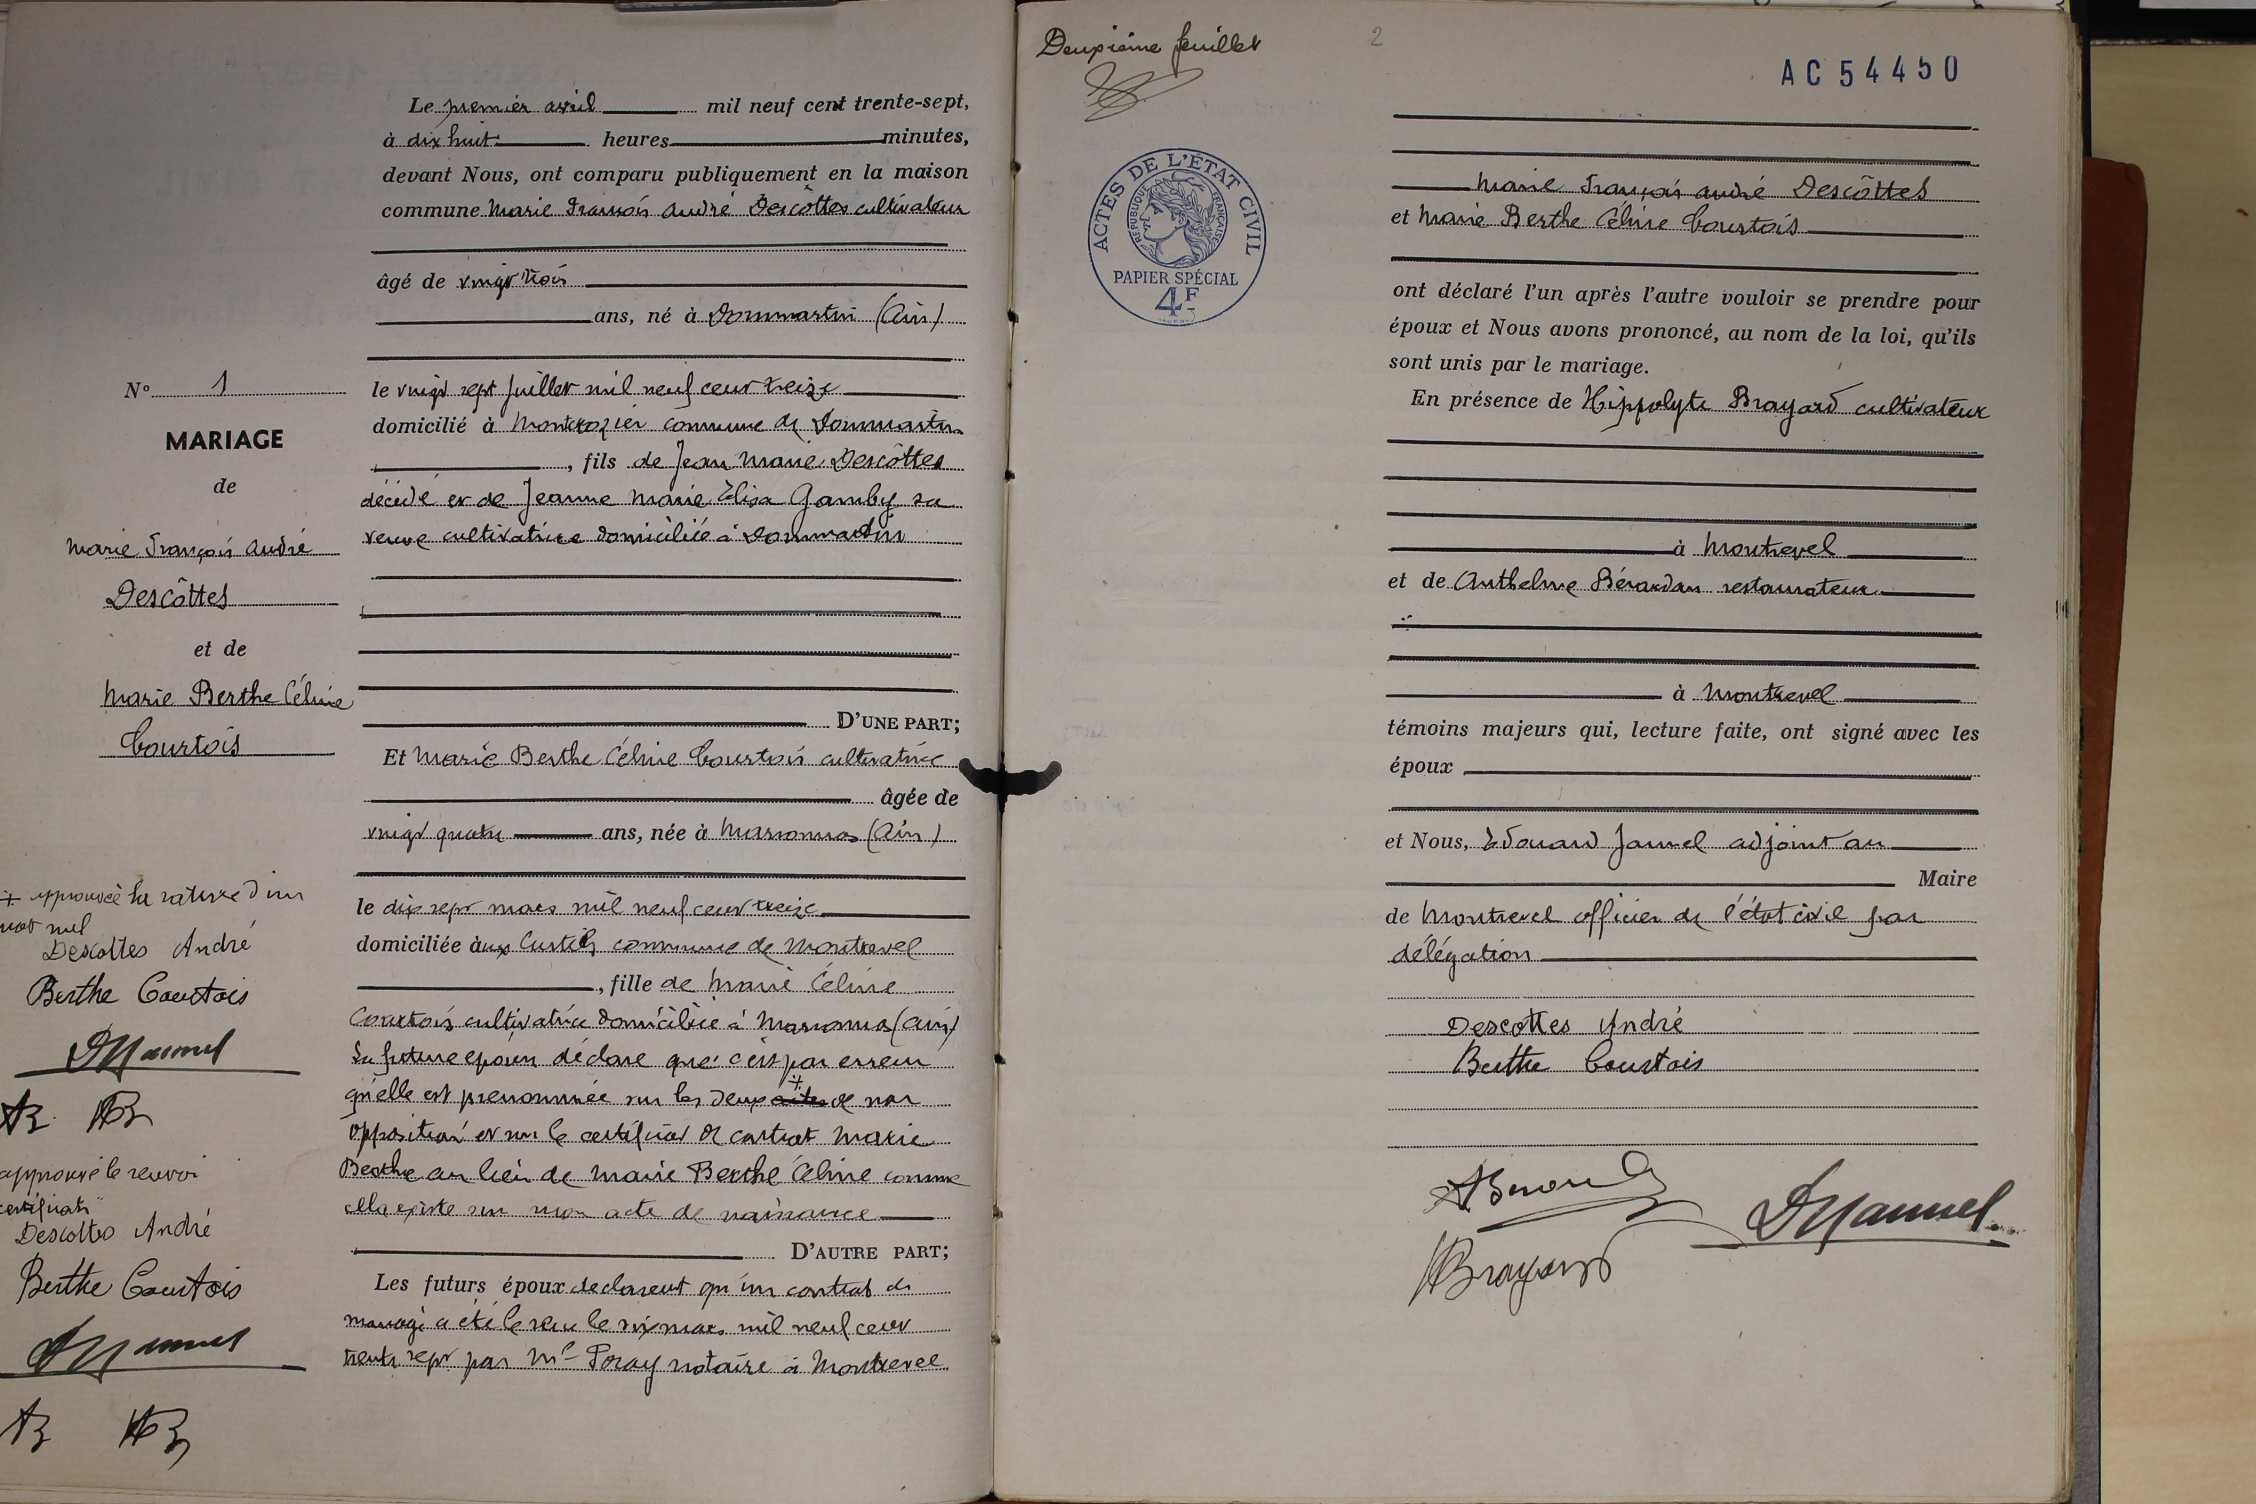 Le premier avril mil neuf cent trente-sept,
à dix huit heures minutes,
devant Nous, ont comparu publiquement en la maison
commune Marie François André Descôttes cultivateur
âgé de vingt trois
ans, né à Dommartin (Ain)
le vingt sept juillet mil neuf cent treize
domicilié à Montcrozier commune de Dommartin
, fils de Jean Marie Descôttes
décédé et de Jeanne Marie Elisa Gamby sa
veuve cultivatrice domiciliée à Dommartin
D'UNE PART;
Et Marie Berthe Céline Courtois cultivatrice
âgée de
vingt quatre ans, née à Marsonnas (Ain)
le dix sept mars mil neuf cent treize
domiciliée aux Curtils commune de Montrevel
, fille de Marie Céline
Courtois cultivatrice domiciliée à Marsonnas (Ain)
La future épouse déclare que c'est par erreur
qu'elle est prenommée sur les deux actes de non
opposition et sur le certificat de contrat Marie
Berthe au lieu de Marie Berthe Céline comme
cela existe sur mon acte de naissance
D'AUTRE PART;
Les futurs époux déclarent qu'un contrat de
mariage a été le reçu le six mars mil neuf cent
trente sept par Me Foray notaire à Montrevel
No 1
MARIAGE
de
Marie François André
Descôttes
et de
Marie Berthe Céline
Courtois
+ approuvée la rature d'un
mot nul
Descottes André
Berthe Courtois
approuvé le renvoi
certificats
Descottes André
Berthe Courtois
Deuxième feuillet
2
AC 54450
ACTES DE L'ÉTAT CIVIL
RÉPUBLIQUE FRANÇAISE
PAPIER SPÉCIAL
4F
Marie François André Descôttes
et Marie Berthe Céline Courtois
ont déclaré l'un après l'autre vouloir se prendre pour
époux et Nous avons prononcé, au nom de la loi, qu'ils
sont unis par le mariage.
En présence de Hippolyte Brayard cultivateur
à Montrevel
et de Anthelme Bérardan restaurateur
à Montrevel
témoins majeurs qui, lecture faite, ont signé avec les
époux
et Nous, Edouard Jannel adjoint au
Maire
de Montrevel officier de l'état civil par
délégation
Descottes André
Berthe Courtois
HBrayard